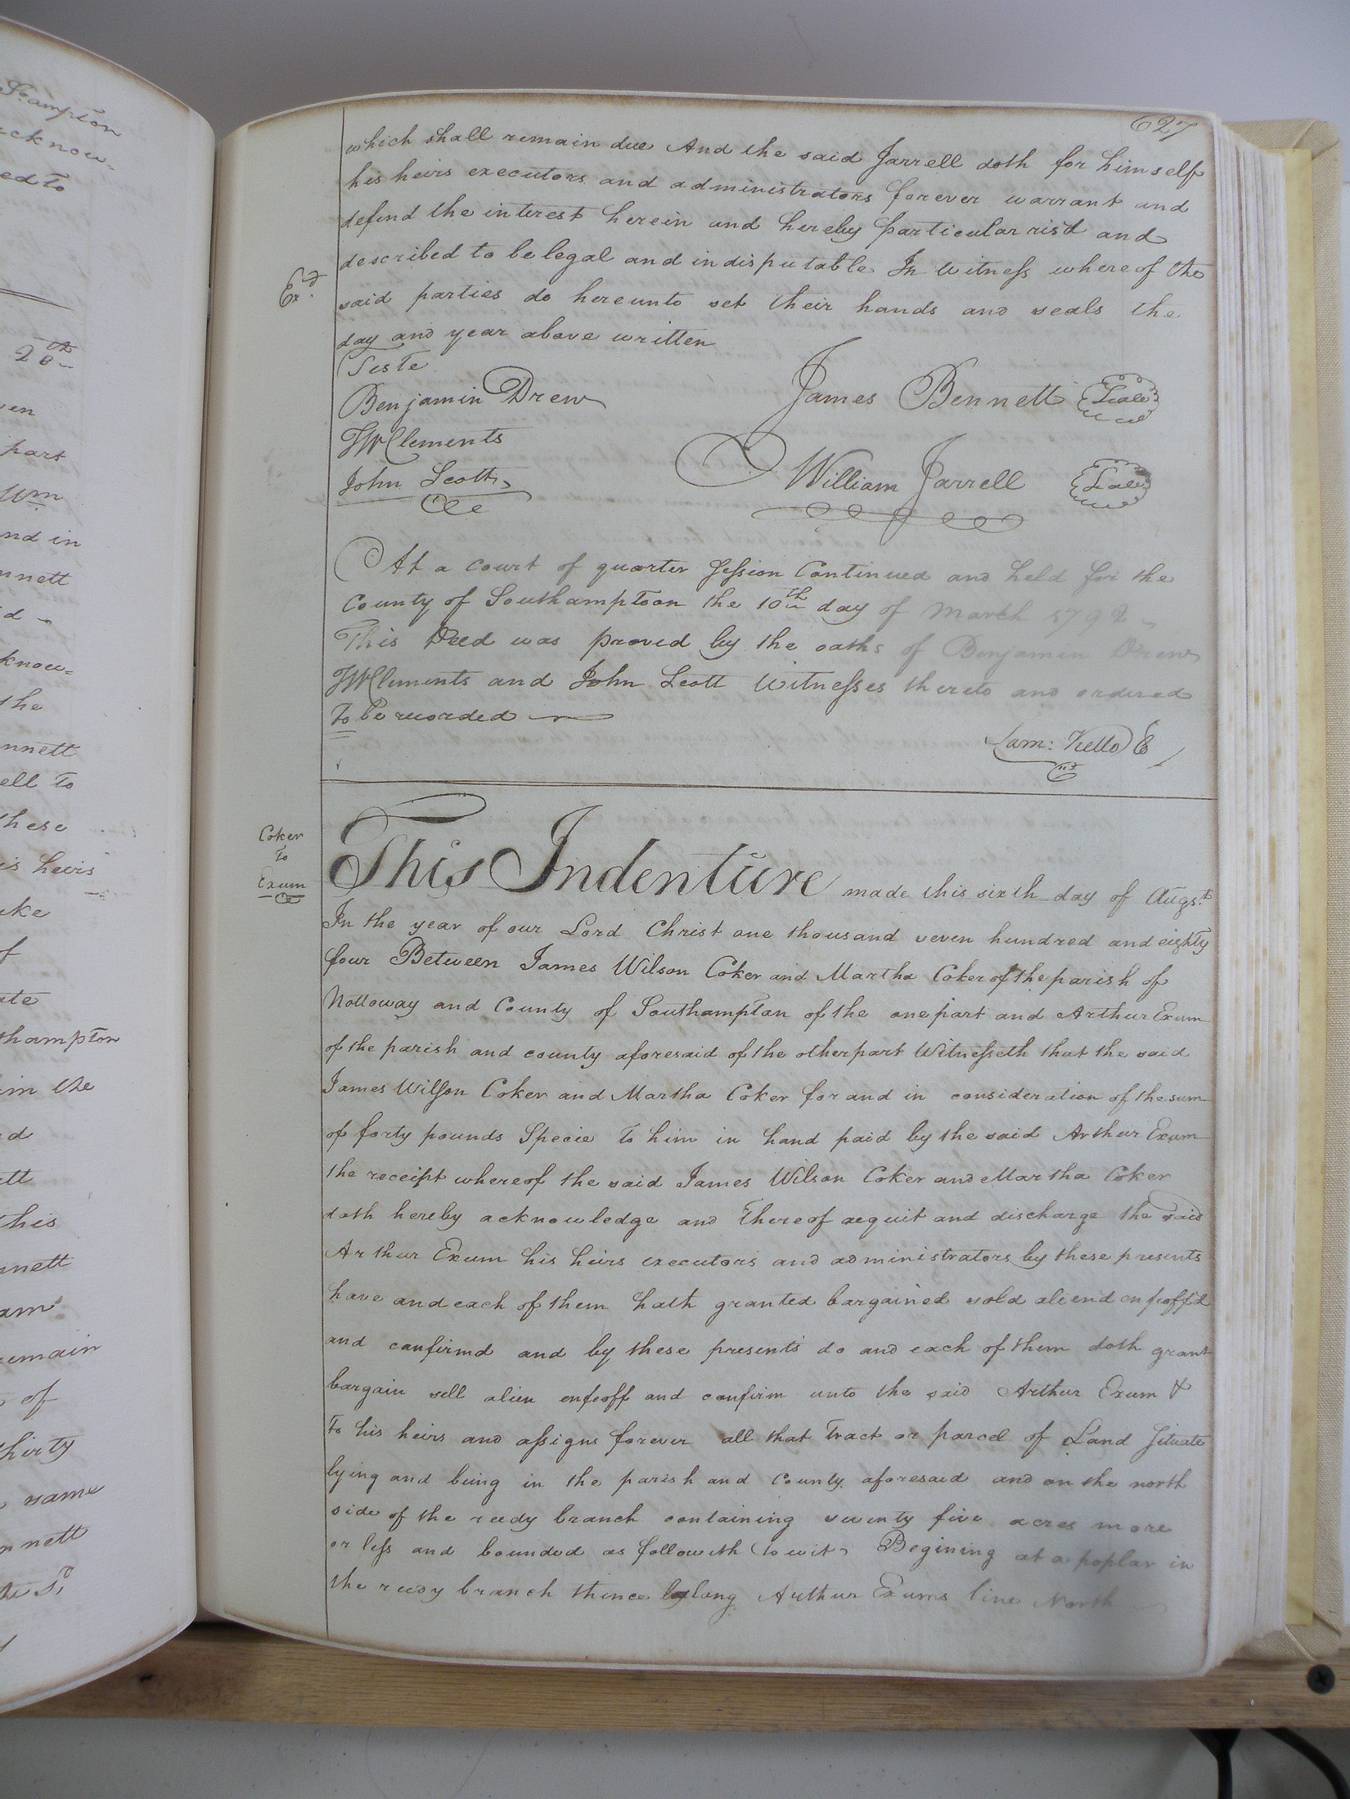 Stampton
acknow-
ed to
20th
ven
part
Wm
nd in
nnett
d
know=
the
nnett
ell To
these
is heirs
uke
of
ate
thampton
im the
ed
ett
this
nnett
am
remain
of
thirty
same
nnett
627
which shall remain due And the said Jarrell doth for himself
his heirs executors and administrators forever warrant and
defend the interest herein and hereby particularrisd and
described to be legal and indisputable In Witness whereof the
Exd.
said parties do hereunto set their hands and seals the
day and year above written
Teste
Benjamin Drew
James Bennett Seal
TW Clements
William Jarrell Seal
John Scott
At a Court of quarter Session Continued and held for the
County of Southamptoon the 10th day of March 1792
This Deed was proved by the oaths of Benjamin Drew
TW Clements and John Scott Witnesses thereto and ordered
To be recorded
Sam: Kello C
Coker
To
Exum
This Indenture made this sixth day of Augst.
In the year of our Lord Christ one thousand seven hundred and eighty
four Between James Wilson Coker and Martha Coker of the parish of
Nottoway and County of Southampton of the one part and Arthur Exum
of the parish and county aforesaid of the other part Witnesseth that the said
James Wilson Coker and Martha Coker for and in consideration of the sum
of forty pounds Specie To him in hand paid by the said Arthur Exum
the receipt whereof the said James Wilson Coker and Martha Coker
doth hereby acknowledge and thereof acquit and discharge the said
Arthur Exum his heirs executors and administrators by these presents
have and each of them hath granted bargained sold aliend enfeoff'd
and confirmd and by these presents do and each of them doth grant
bargain sell alien enfeoff and confirm unto the said Arthur Exum &
To his heirs and assigns forever all that Tract or parcel of Land Situate
lying and being in the parish and County aforesaid and on the north
side of the reedy branch containing seventy five acres more
or less and bounded as followith (to wit) Begining at a poplar in
the reedy branch thence along Arthur Exums line North